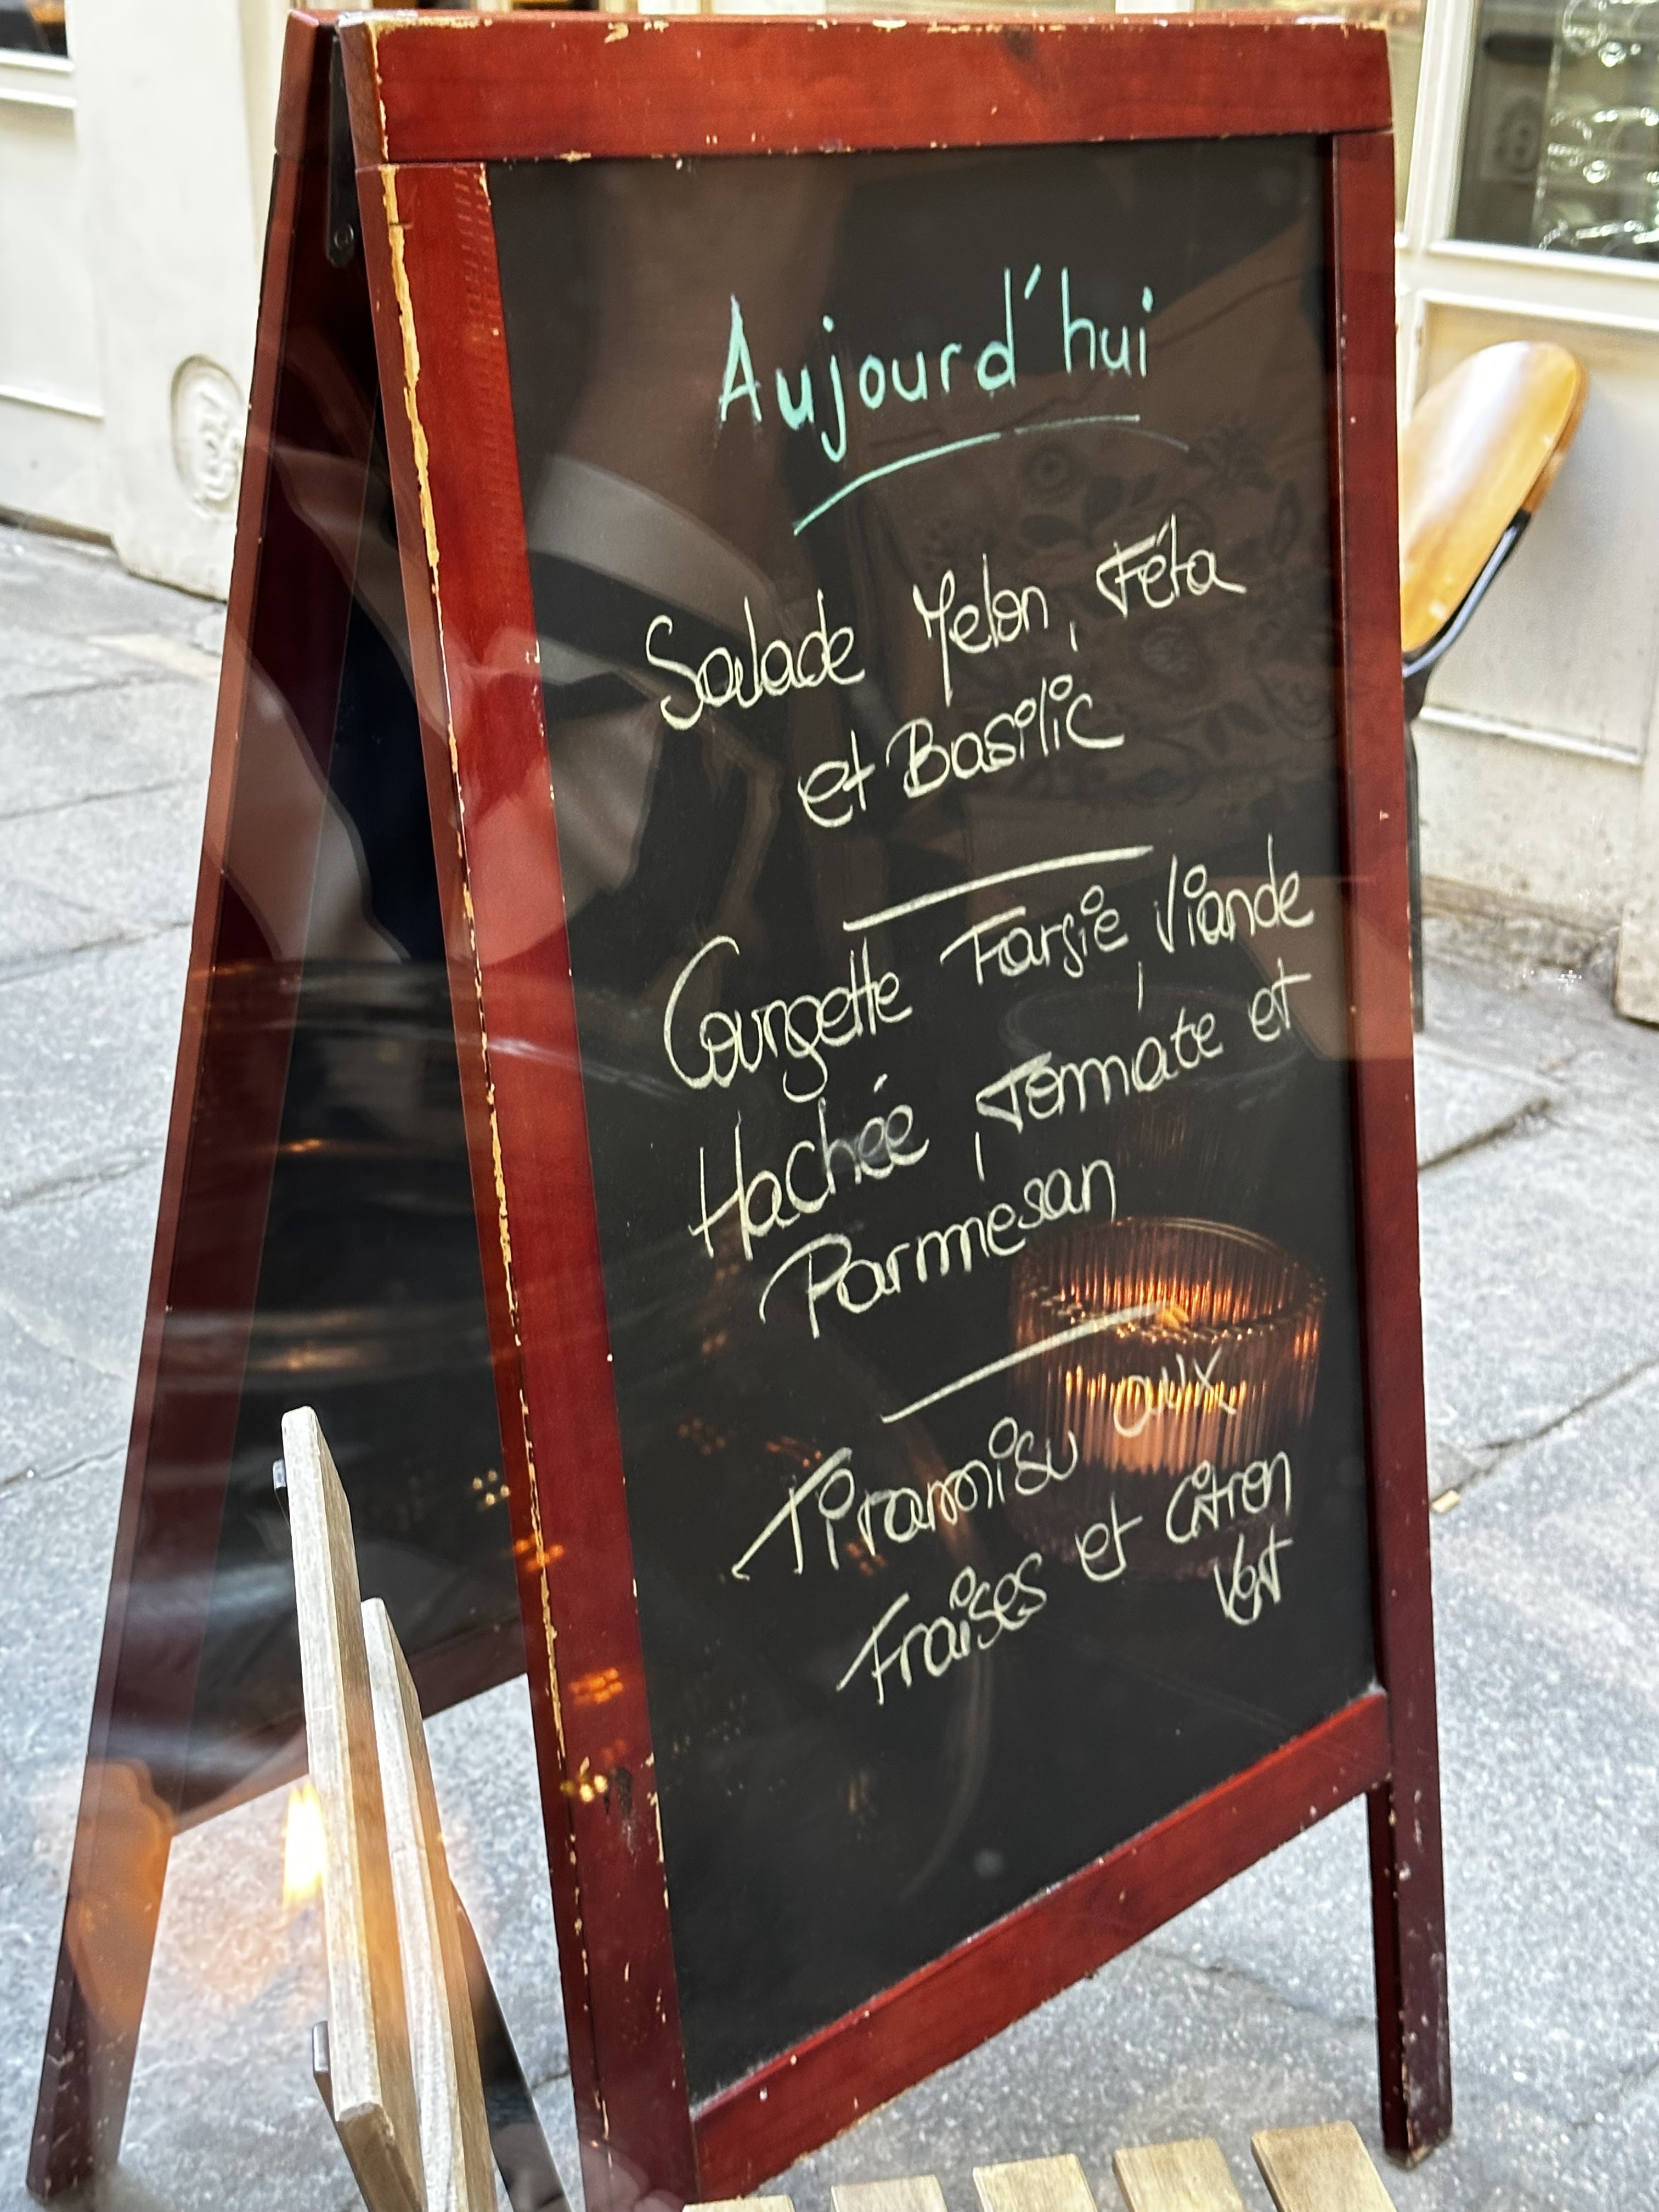 Aujourd'hui
Salade Melon, Féta
et Basilic
Courgette Farçie, Viande
Hachée, Tomate et
Parmesan
Tiramisu aux
Fraises et Citron
Vert